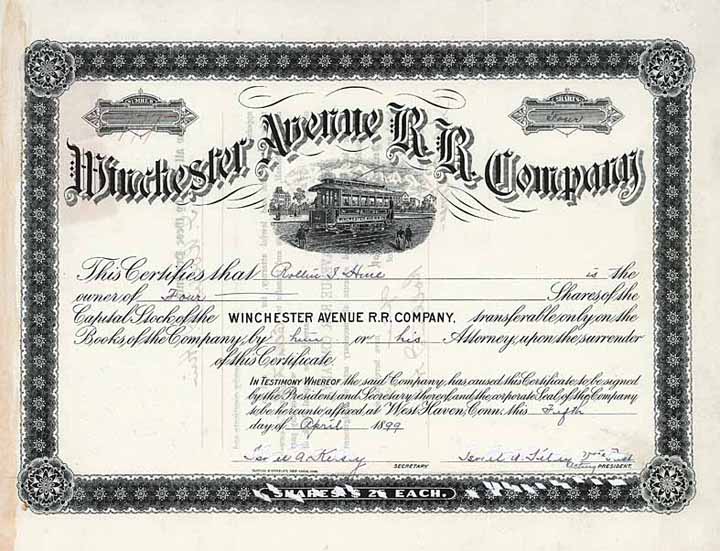 NUMBER
SHARES
Four
Winchester Avenue R.R. Company
This Certifies that Rollin S. Hine is the
owner of Four Shares of the
Capital Stock of the WINCHESTER AVENUE R.R. COMPANY, transferable only on the
Books of the Company by him or his Attorney, upon the surrender
of this Certificate
IN TESTIMONY WHEREOF the said Company, has caused this Certificate to be signed
by the President and Secretary thereof, and the corporate Seal of the Company
to be hereunto affixed, at West Haven, Conn., this Fifth
day of April 1899
Israel A. Kelsey
Israel A. Kelsey
SECRETARY
PRESIDENT.
SHARES $ 25 EACH.